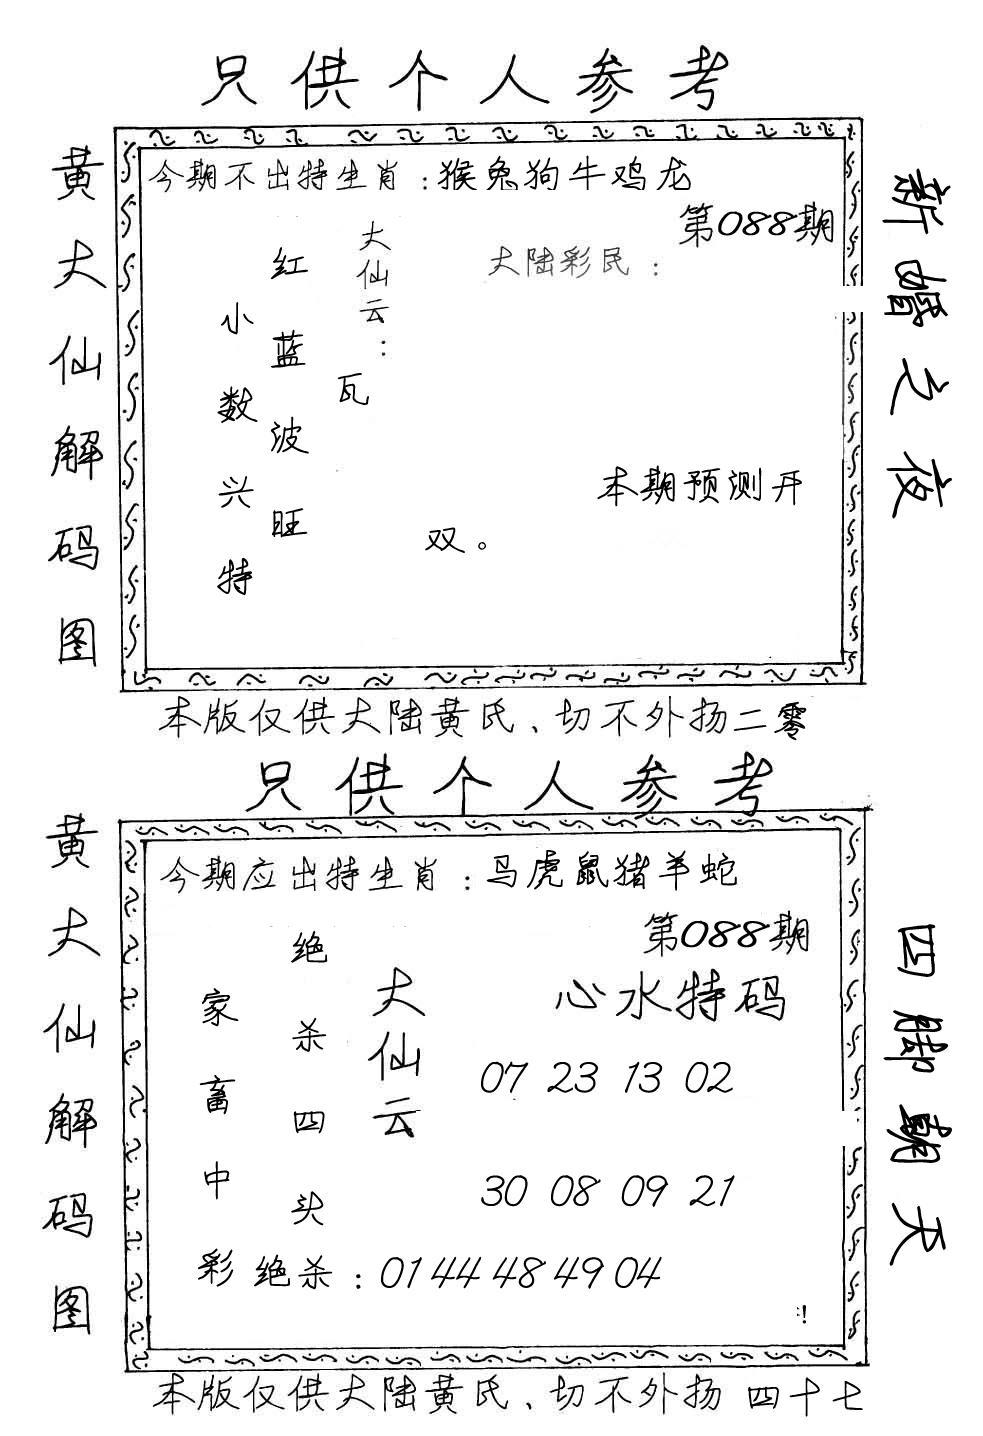 只供个人参考
黄大仙解码图
今期不出特生肖:猴兔狗牛鸡龙
第088期
大陆彩民:
大仙云:
瓦
红蓝波旺
小数兴特
本期预测开
双。
新婚之夜
本版仅供大陆黄氏、切不外扬二零
只供个人参考
黄大仙解码图
今期应出特生肖:马虎鼠猪羊蛇
第088期
心水特码
大仙云
绝杀四头
家畜中彩
07 23 13 02
30 08 09 21
绝杀:01 44 48 49 04
:!
四脚朝天
本版仅供大陆黄氏、切不外扬 四十七